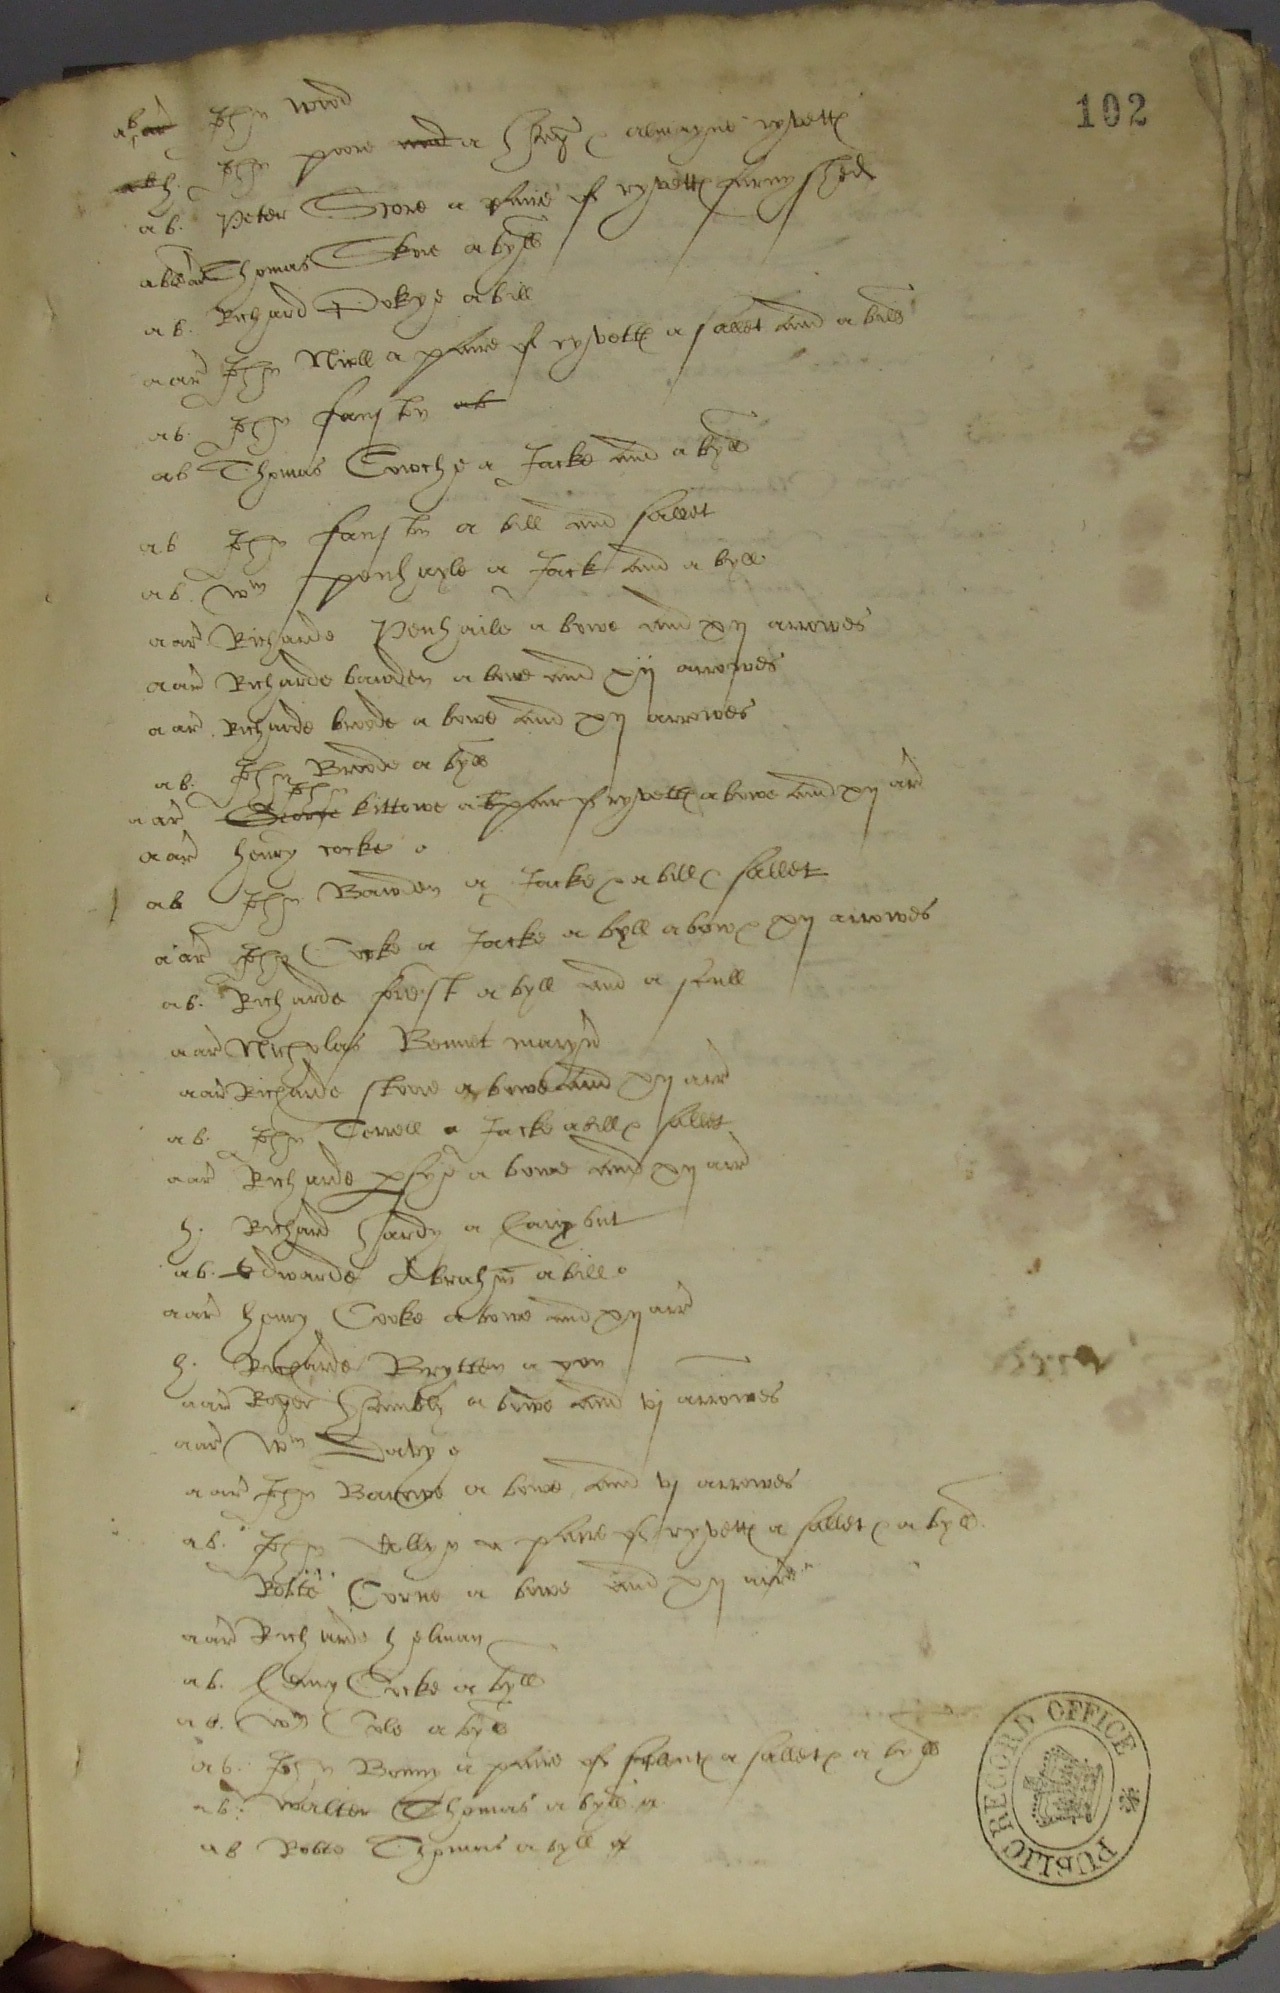 102
ab John wod
h. John poore a harq & almayne ryvett
ab. Peter Store a paire of ryvett furnyshed
ab Thomas Store a byll
ab. Richard a bill
aar John Niell a paire of ryvett a sallet and a bill
ab. John ab
ab Thomas Cowche a Jacke and a byll
ab John a bill and sallet
ab. Wm penhayle a Jack and a byll
aar Richarde Penhaile a bowe and xij arrowes
aar Richarde bawden a bowe and xij arrowes
aar Richarde broode a bowe and xij arrowes
ab. John Broode a byll
aar John kittowe a paire of ryvett a bowe and xij ar
aar henry cocke
ab John Bawden a Jacke & a bill & sallet
aar John Cocke a Jacke a byll a bow & xij arrowes
ab. Richarde a byll and a scull
aar Nicholas Bennet
aar Richarde store a bowe and xij arr
ab. John Terrell a Jacke a bill & sallet
aar Richarde a bowe and xij arr
h. Richard Hardy a
ab. Edwarde Abraham a bill
aar henry Cocke a bowe and xij arr
h. Richarde Brytten a gon
aar Roger Hambly a bowe and vj arrowes
aar Wm Davy
aar John a bowe and vj arrowes
ab. John a paire of ryvett a sallet & a byll
Robte Corne a bowe and xij arr
aar Richarde helman
ab. Henry Cocke a byll
ab. Wm Cole a byll
ab. John Bonny a paire of a sallet & a byll
ab. Walter Thomas a byll
ab Robte Thomas a byll
PUBLIC RECORD OFFICE